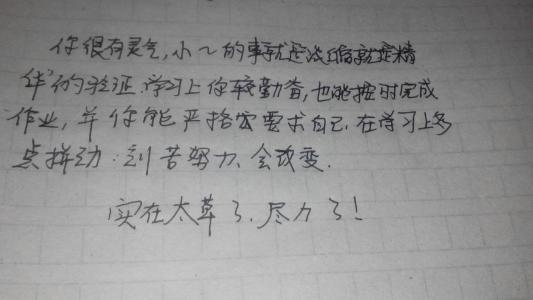 你很有灵气,小~的事就是浓缩就是精
华的验证.学习上你较勤奋,也能按时完成
作业,并你能严格要求自己.在学习上多
点拼劲.刻苦努力、会改变.
实在太草了.尽力了!